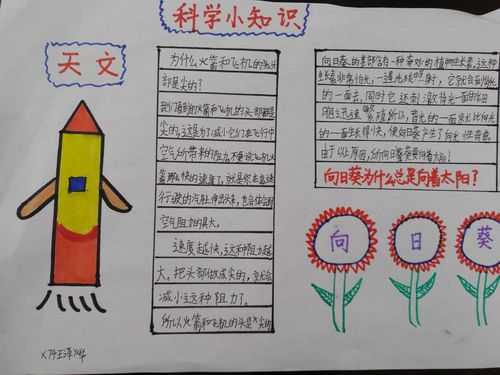 科学小知识
天文
为什么火箭和飞机的头
都是尖的?
我们看到的火箭和飞机的头部都是
尖的,这是为了减小它们在飞行中
空气所带来的阻力,不要说飞机火
箭那么快的速度了,就是你在高速
行驶的汽车伸出头来,也会体会到
空气阻力的具大。
速度越快,这种阻力越
大,把头部做成尖的,就会
减小这种阻力了。
所以火箭和飞机的头是尖的
向日葵的茎部含有一种奇妙的植物生长素,这种
生长素非常怕光,一遇光线照射,它就会到背光
的一面去,同时它还刺激背光一面的细
胞迅速繁殖所以,背光的一面就比向光
的一面生长得快,使向日葵产生了向光性弯曲
由于以上原因,所向日葵总向着太阳!
向日葵为什么总是向着太阳?
向 日 葵